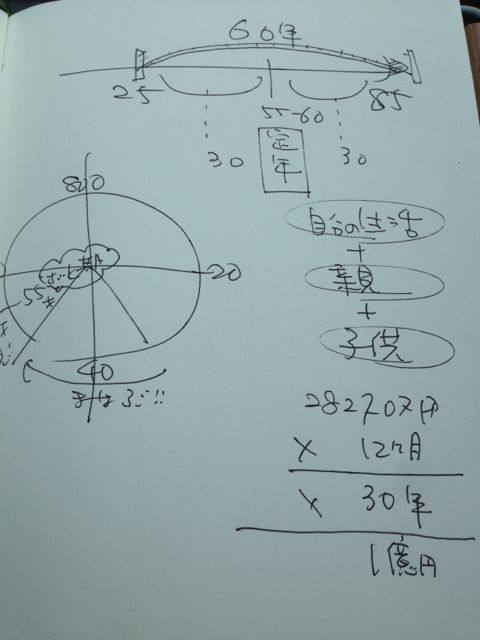 60年
25
55-60
85
30
定年
30
自分の生活
+
親
+
子供
80 0
20
55才
40
282707円
× 12ヶ月
× 30年
1億円